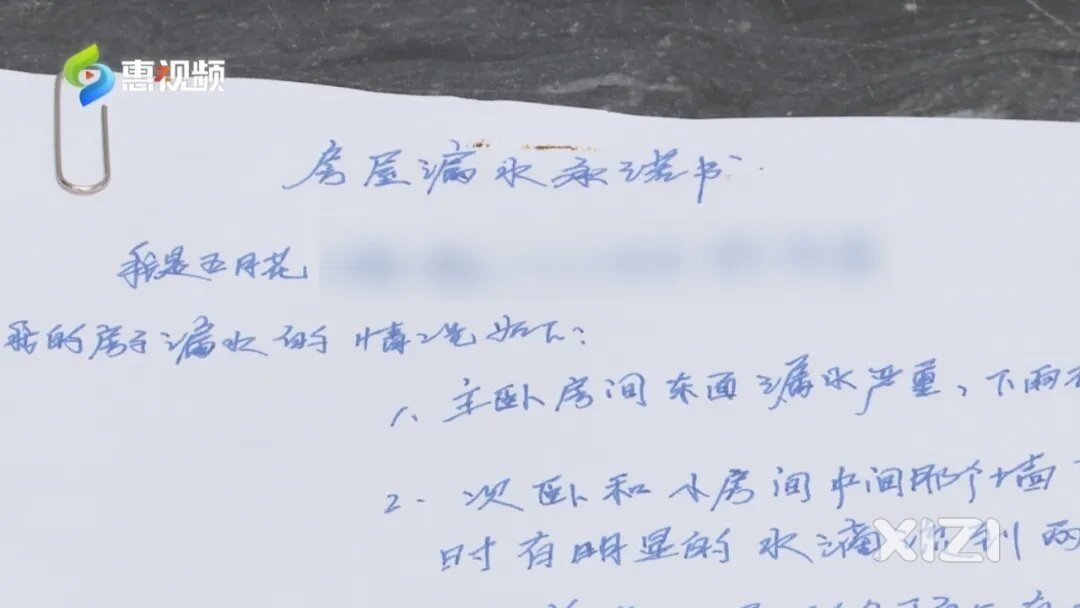 惠视频
房屋漏水承诺书
我是五月花
我的房子漏水的情况如下:
1、主卧房间东面漏水严重,下雨
2.次卧和小房间中间那个墙
时有明显的水滴 到两
XIZI